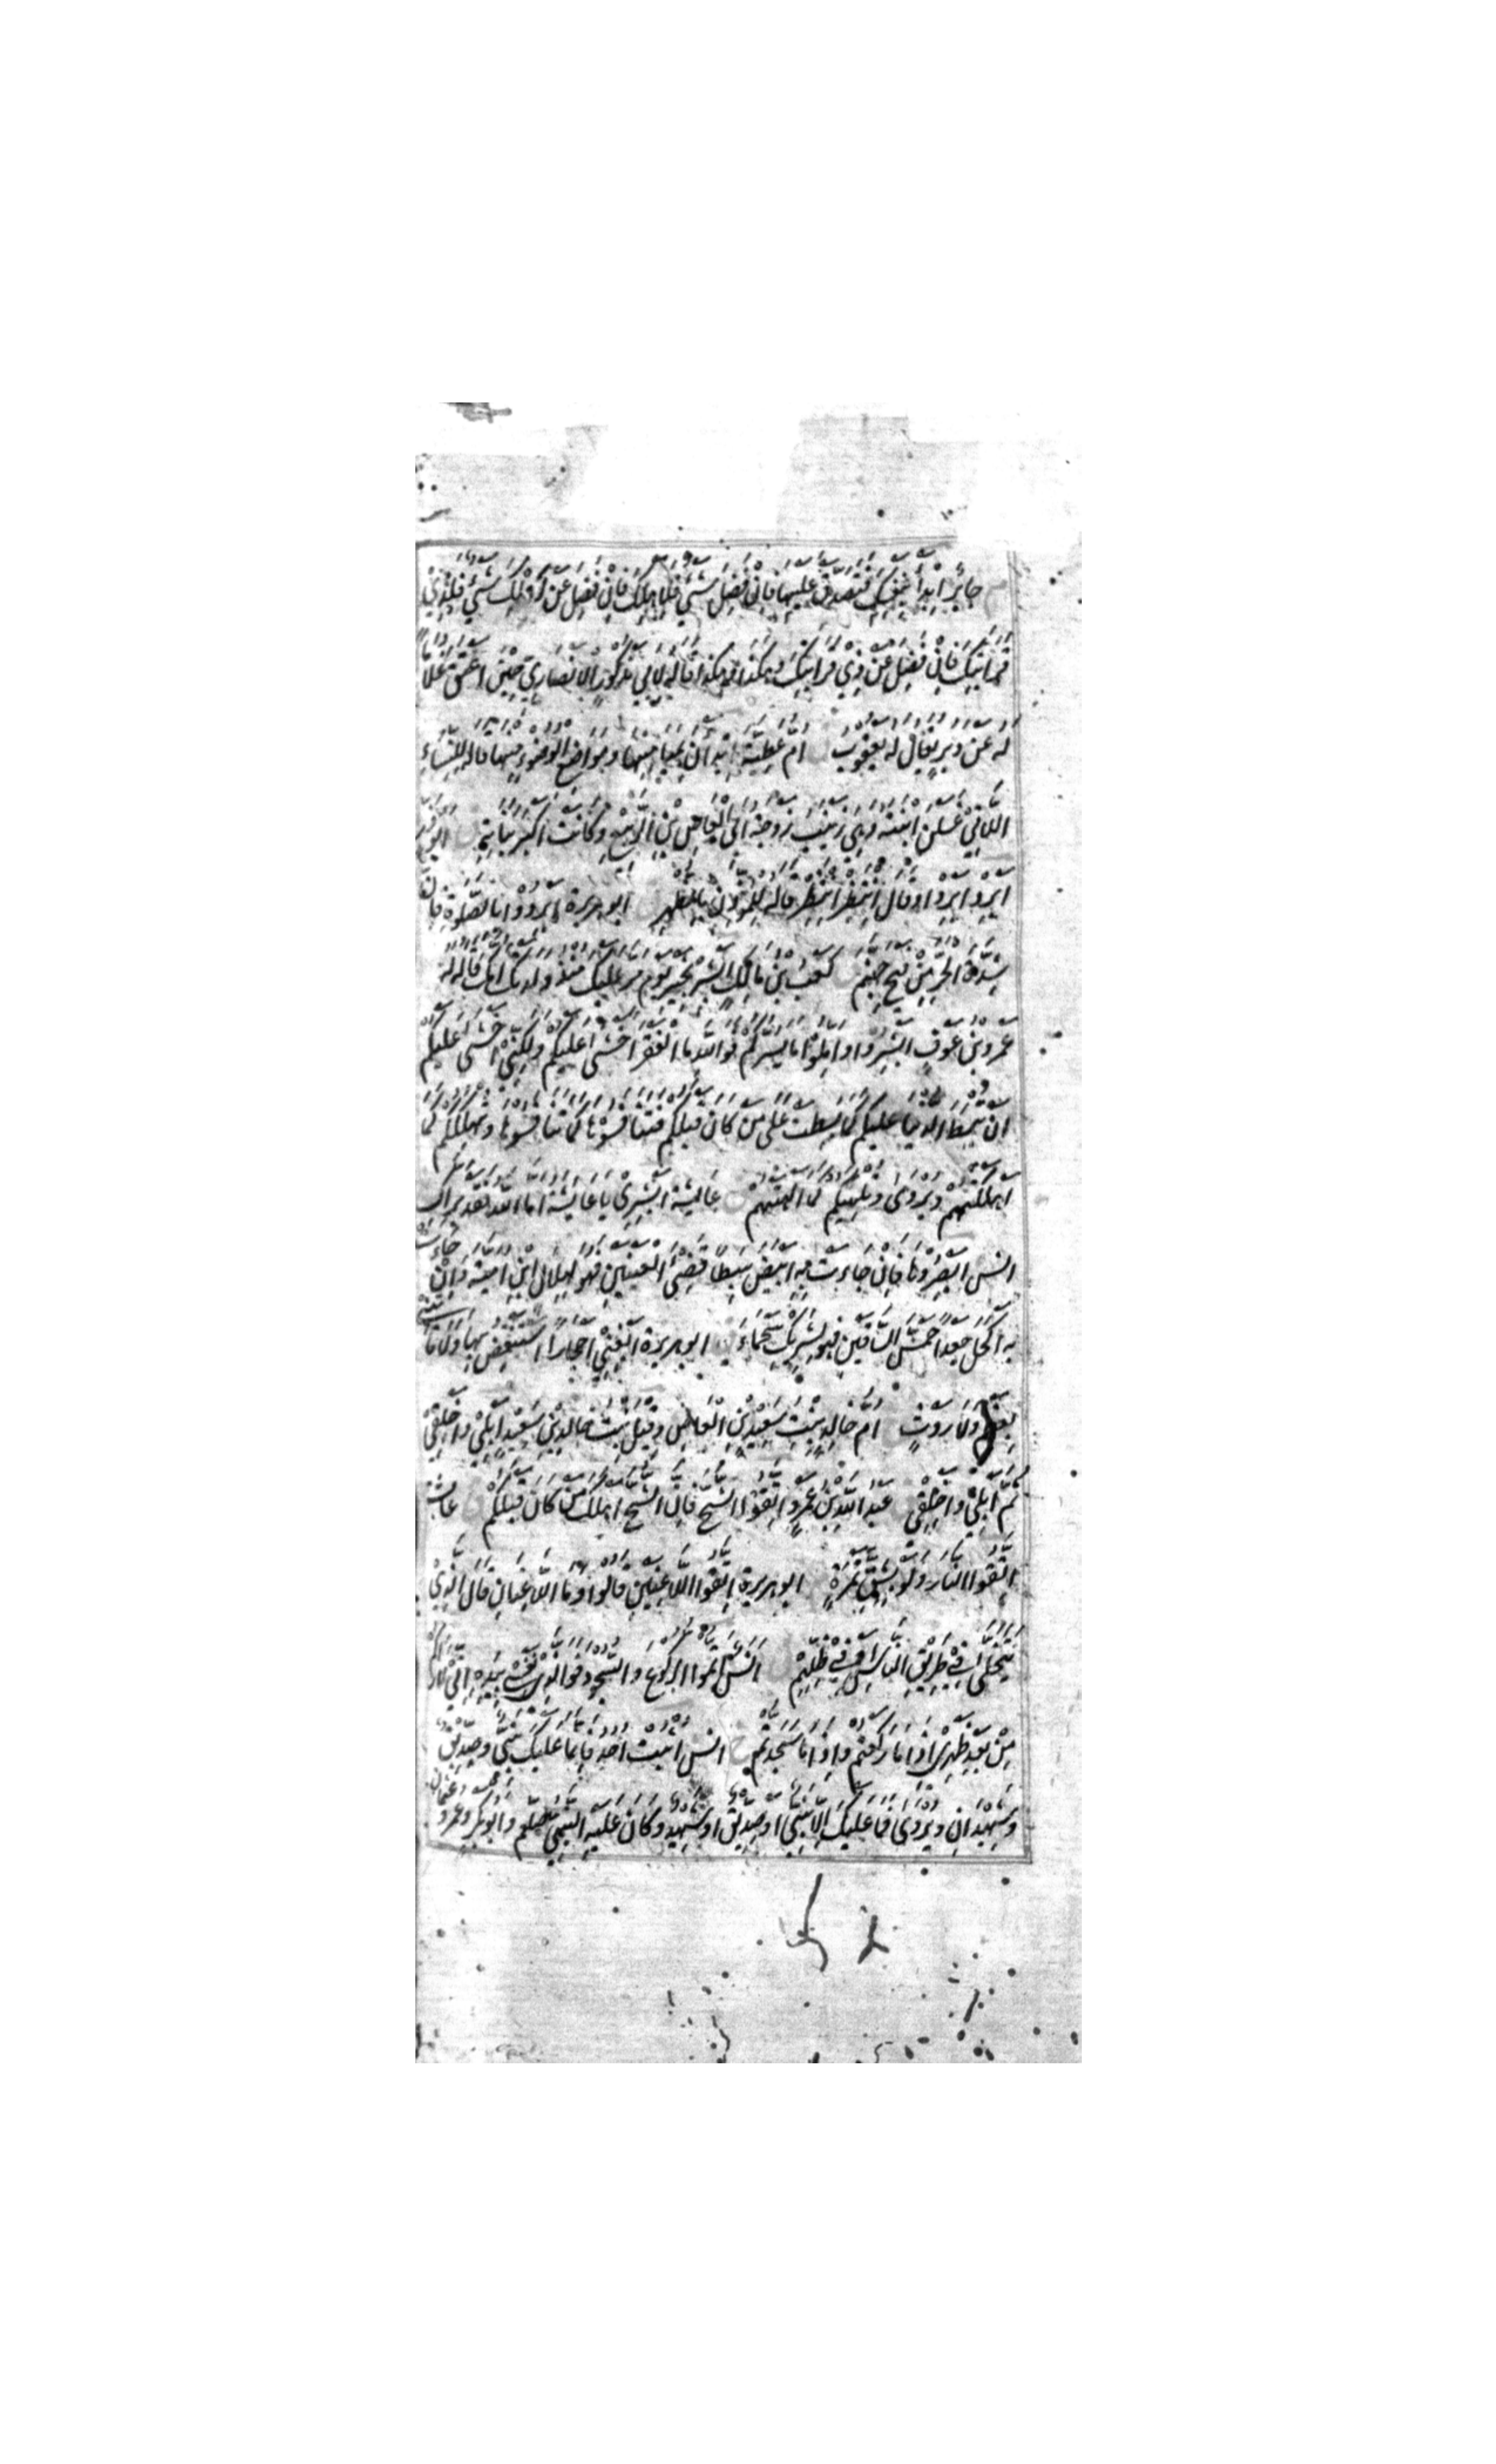 م جابر ابدأ بنفسك فتصدق عليها فان فضل شئ فلاهلك فان فضل عن اهلك شئ فلذي
قرابتك فان فضل عن ذي قرابتك فهكذا وهكذا قاله لابي مذكور الانصاري حين اعتق غلاما
له عن دبر يقال له يعقوب ام عطية ابدأن بميامنها ومواضع الوضوء منها قاله للنساء
اللاتي غسلن ابنته وهي زينب زوجة ابي العاص بن الربيع وكانت اكبر بناته ابو ذر
ابرد ابرد او قال انتظر انتظر قاله للمؤذن بالظهر ابو هريرة ابردوا بالصلوة فان
شدة الحر من فيح جهنم كعب بن مالك ابشر بخير يوم مر عليك منذ ولدتك امك قاله له
عمرو بن عوف ابشروا واملوا ما يسركم فوالله ما الفقر اخشى عليكم ولكني اخشى عليكم
ان تبسط الدنيا عليكم كما بسطت على من كان قبلكم فتنافسوها كما تنافسوها وتهلككم كما
اهلكتهم ويروى وتلهيكم كما الهتهم عايشة ابشري يا عايشة اما الله فقد براك
انس ابصروها فان جاءت به ابيض سبطا قضئ العينين فهو لهلال ابن امية وان جاءت
به اكحل جعدا حمش الساقين فهو لشريك بن سحماء ابو هريرة ابغني احجارا استنفض بها ولا تأتني
بعظم ولا روث ام خالد بنت سعيد بن العاص وقيل بنت خالد بن سعيد ابلي واخلقي
ثم ابلي واخلقي عبد الله بن عمرو اتقوا الشح فان الشح اهلك من كان قبلكم عايشة
اتقوا النار ولو بشق تمرة ابو هريرة اتقوا اللاعنين قالوا وما اللاعنان قال الذي
يتخلى في طريق الناس او في ظلهم انس اتموا الركوع والسجود فوالذي نفسي بيده اني لاراكم
من بعد ظهري اذا ما ركعتم واذا ما سجدتم خ انس اثبت احد فانما عليك نبي وصديق
وشهيدان ويروى فما عليك الا نبي او صديق او شهيد وكان عليه النبي صلعم وابو بكر وعمر وعثمان